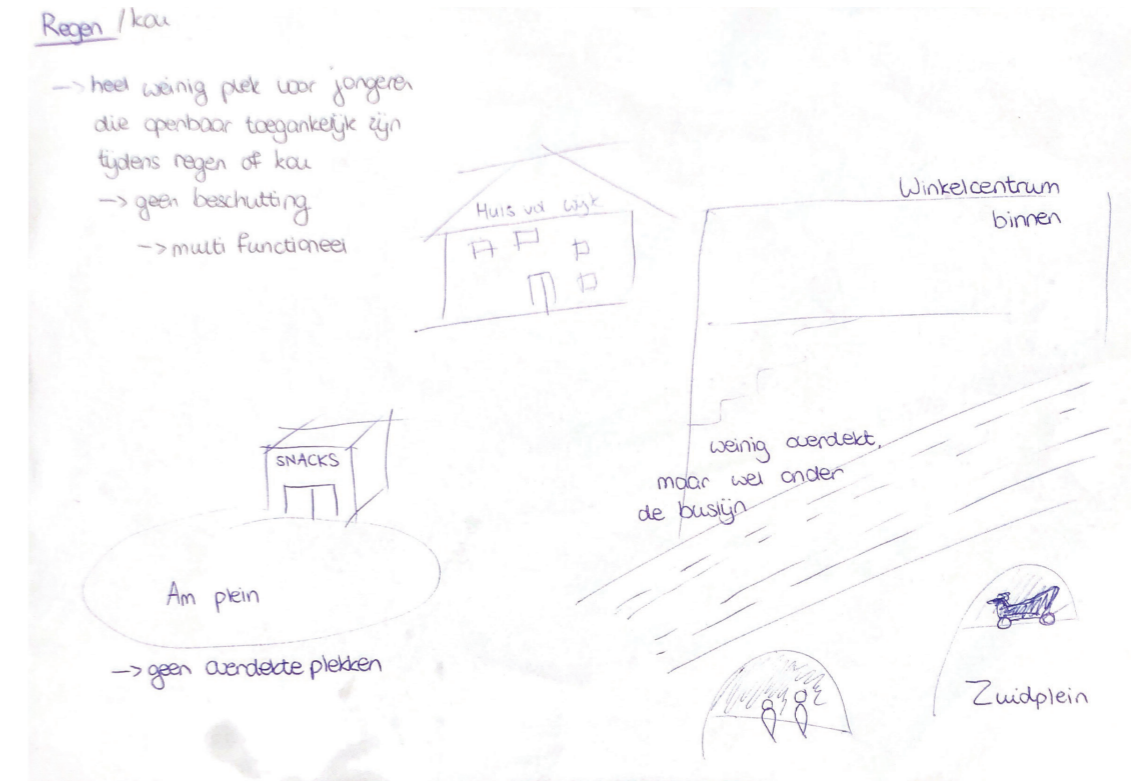 Regen / kou
-> heel weinig plek voor jongeren
die openbaar toegankelijk zijn
tijdens regen of kou
-> geen beschutting
-> multi functioneel
Huis vd Wijk
Winkelcentrum
binnen
SNACKS
weinig overdekt,
maar wel onder
de buslijn
Am plein
-> geen overdekte plekken
Zuidplein